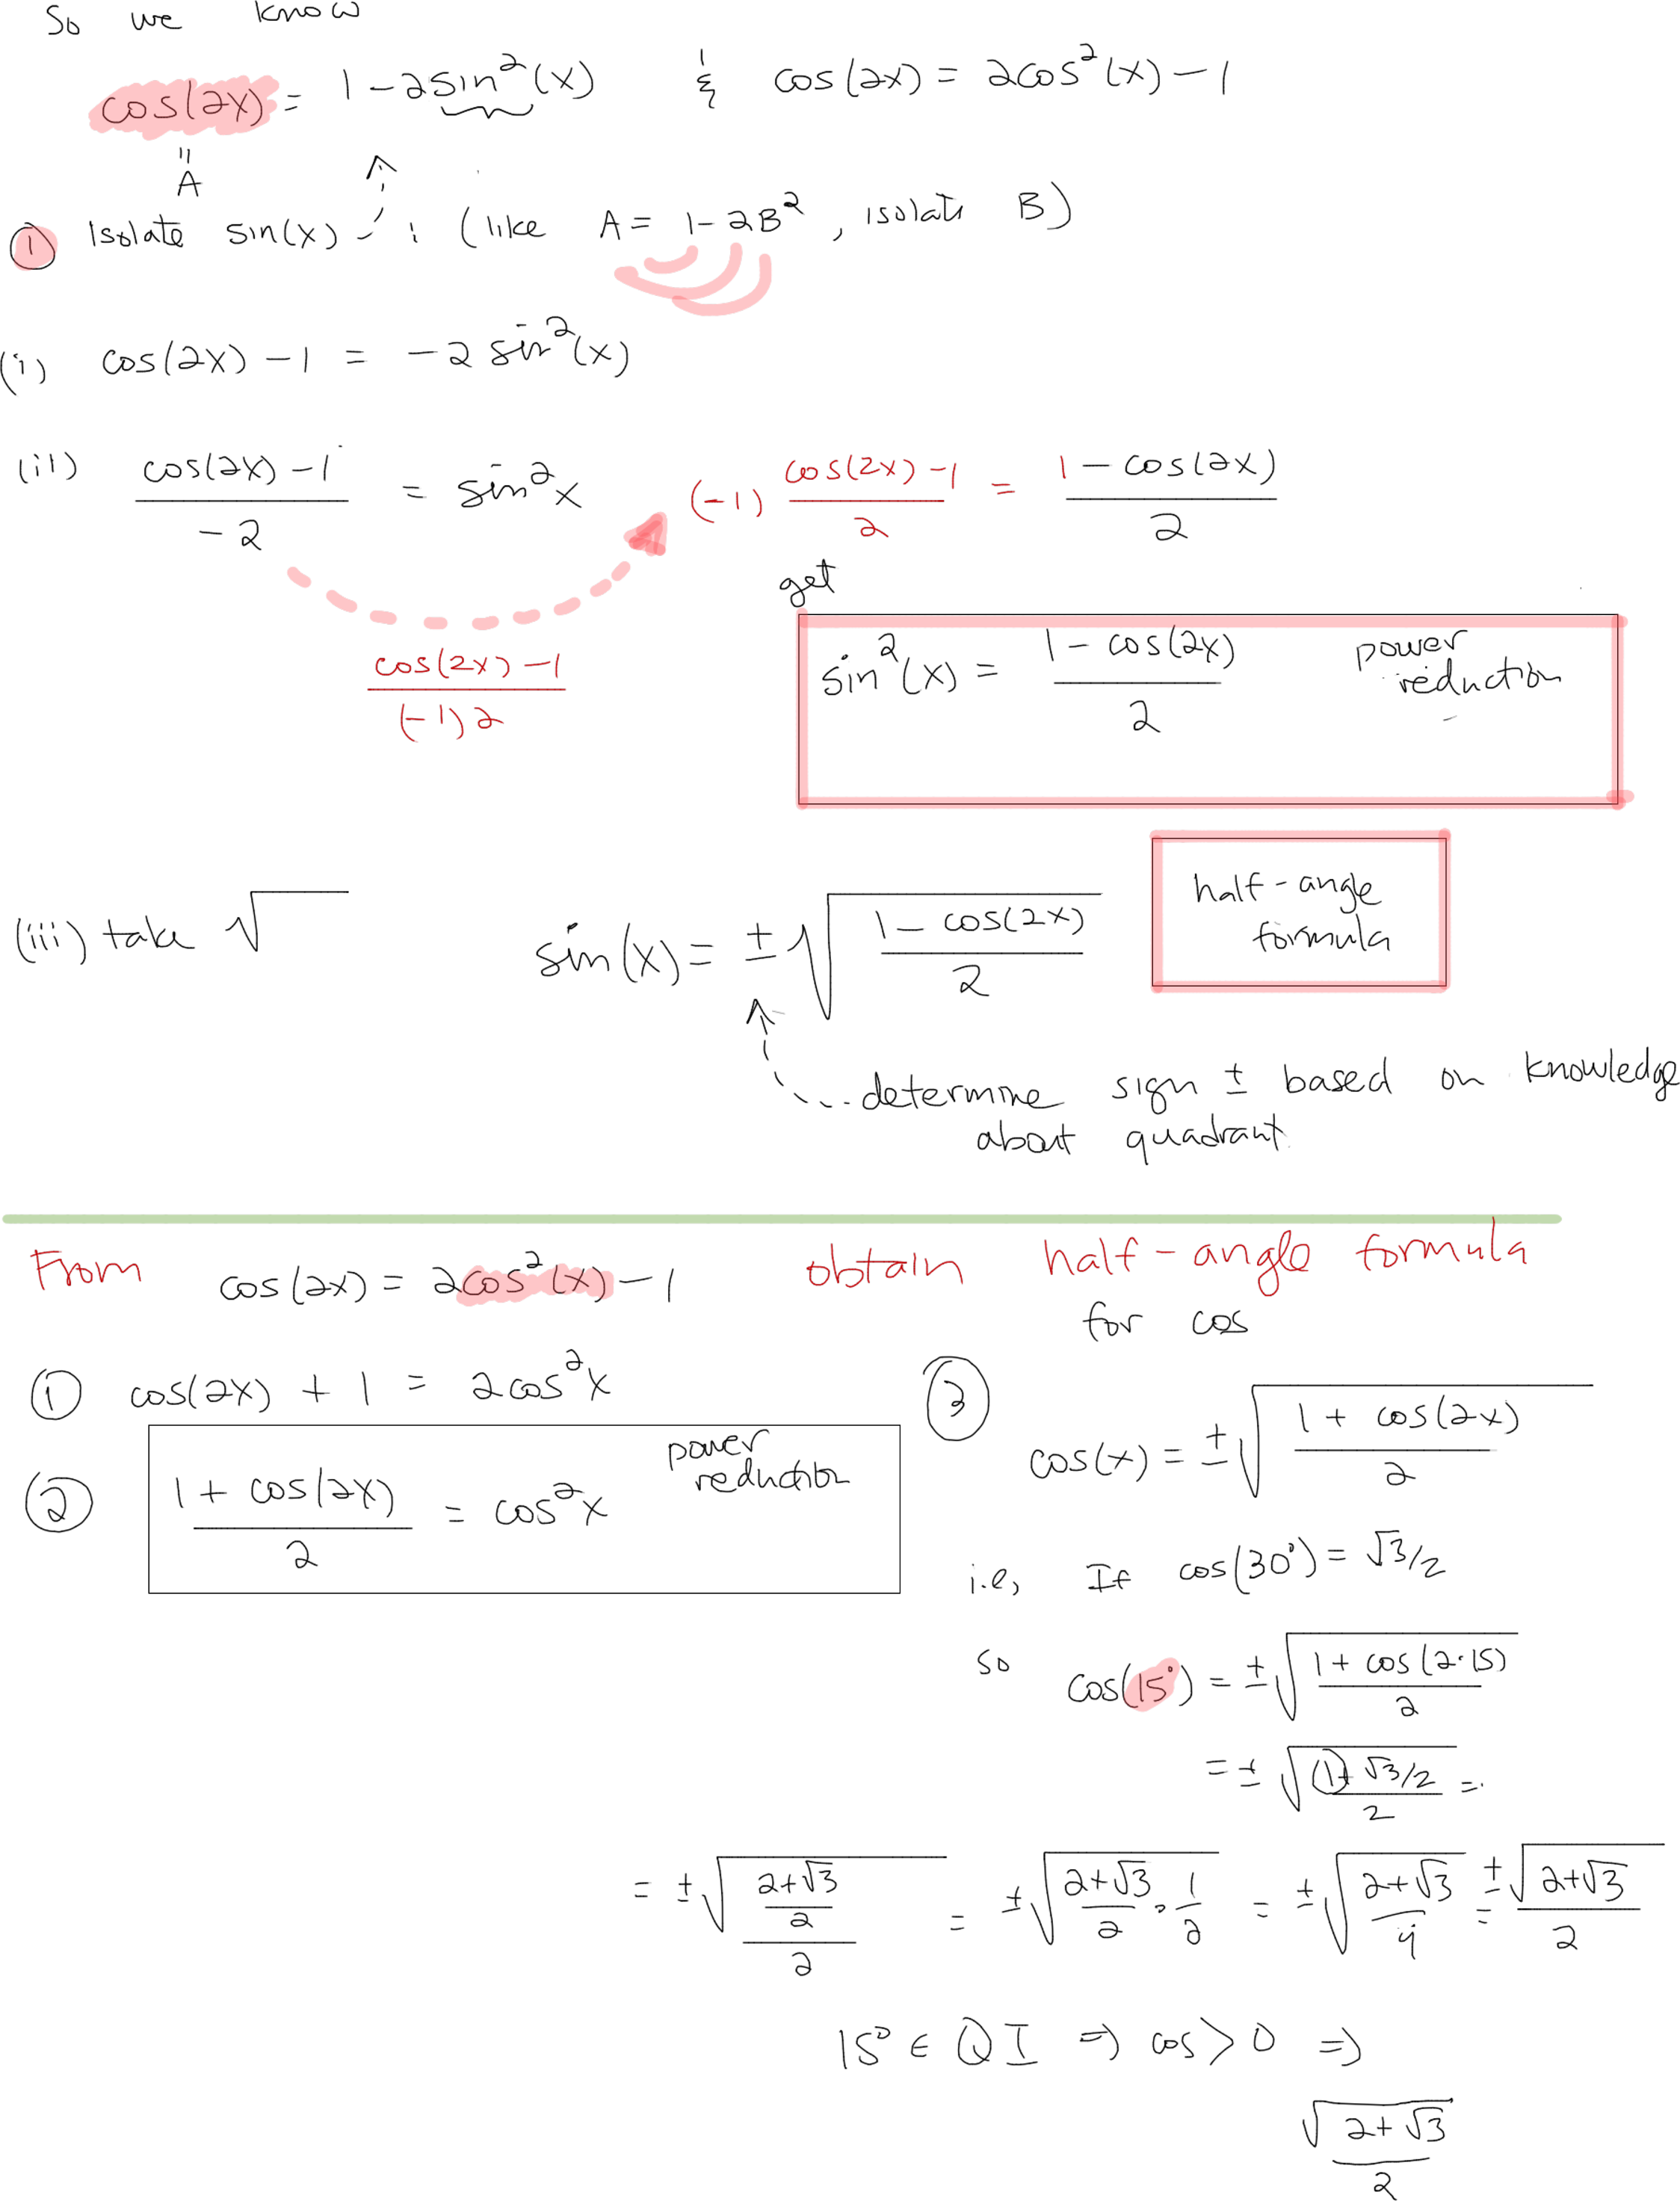 So we know
cos(2x) = 1 - 2sin²(x) & cos(2x) = 2cos²(x) - 1
=
A
① Isolate sin(x) : (like A = 1 - 2B², isolate B)
(i) cos(2x) - 1 = -2 sin²(x)
(ii) (cos(2x) - 1)/(-2) = sin²x (-1) (cos(2x) - 1)/2 = (1 - cos(2x))/2
(cos(2x) - 1)/((-1)2)
get
sin²(x) = (1 - cos(2x))/2 power reduction
(iii) take √ sin(x) = ±√((1 - cos(2x))/2) half-angle formula
determine sign ± based on knowledge
about quadrant.
From cos(2x) = 2cos²(x) - 1 obtain half-angle formula
for cos
① cos(2x) + 1 = 2cos²x
② (1 + cos(2x))/2 = cos²x power reduction
③ cos(x) = ±√((1 + cos(2x))/2)
i.e, If cos(30°) = √3/2
so cos(15°) = ±√((1 + cos(2·15))/2)
= ±√((1 + √3/2)/2) =
= ±√(((2+√3)/2)/2) = ±√((2+√3)/2 · 1/2) = ±√((2+√3)/4) = ±√(2+√3)/2
15° ∈ Q I ⇒ cos > 0 ⇒
√(2+√3)/2